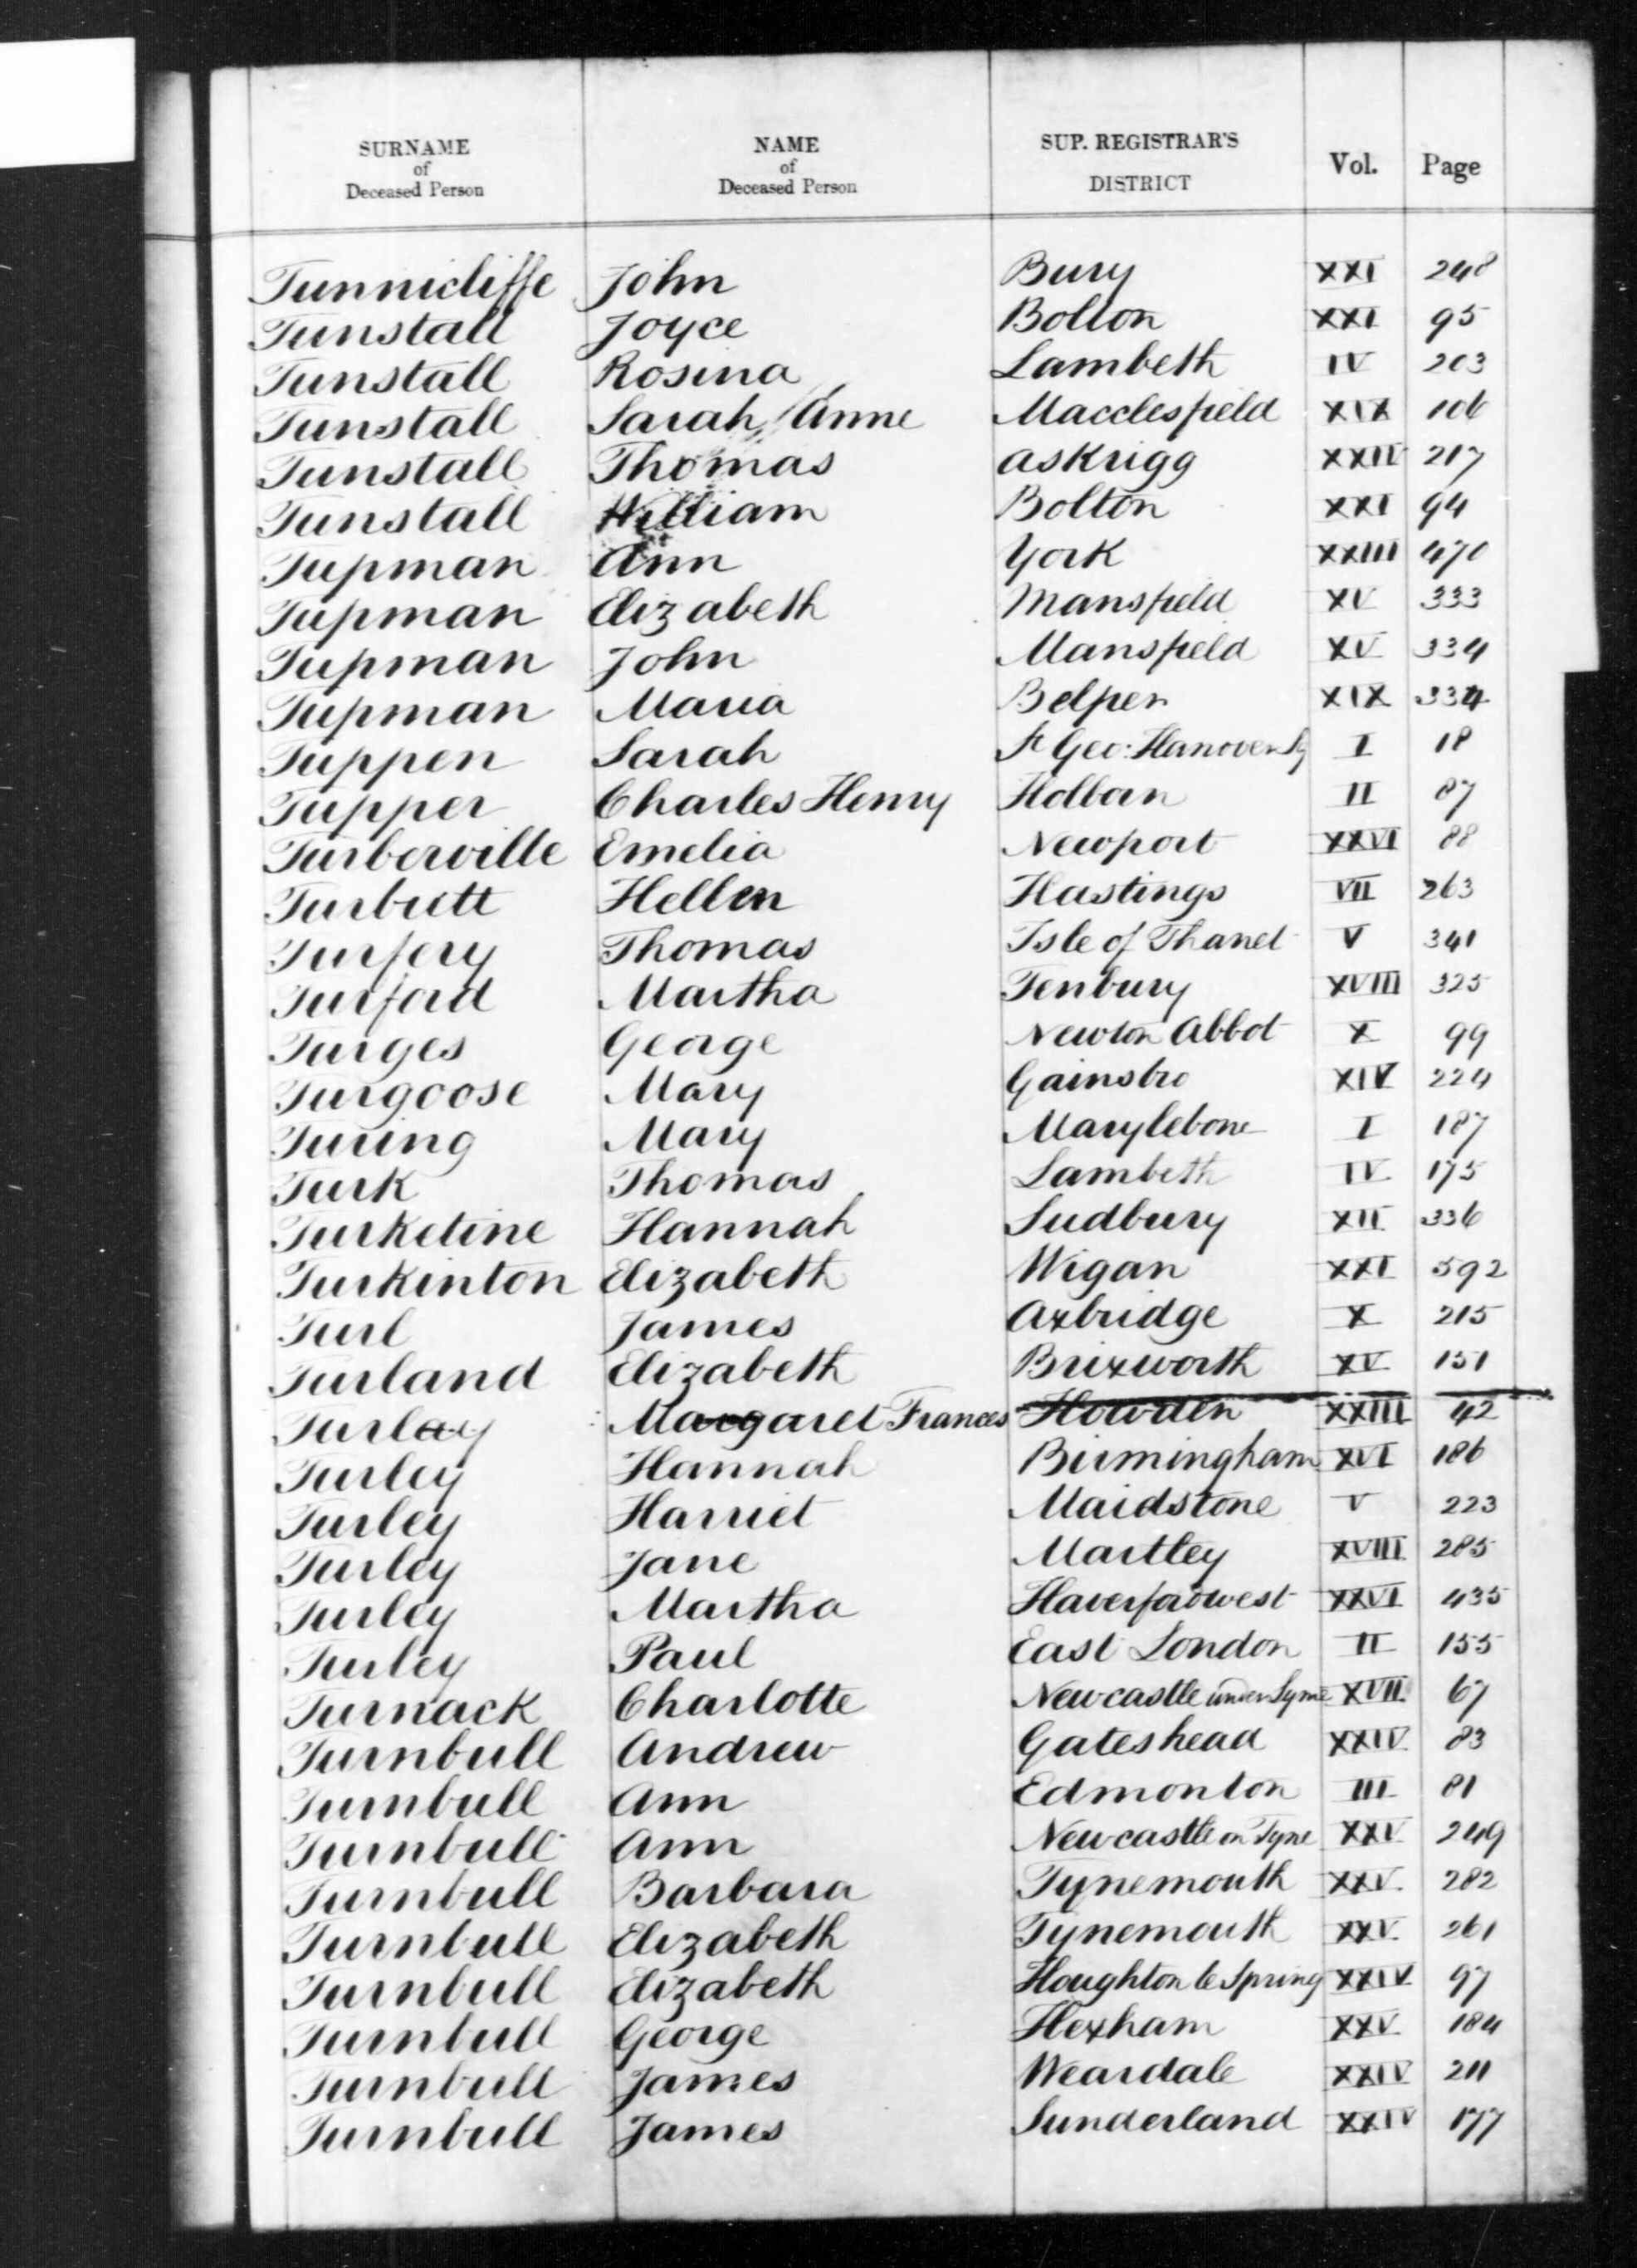 SURNAME of Deceased Person NAME of Deceased Person SUP. REGISTRAR'S DISTRICT Vol. Page
Tunnicliffe John Bury XXI 248
Tunstall Joyce Bolton XXI 95
Tunstall Rosina Lambeth IV 203
Tunstall Sarah Anne Macclesfield XIX 106
Tunstall Thomas Askrigg XXIV 217
Tunstall William Bolton XXI 94
Tupman Ann York XXIII 470
Tupman Elizabeth Mansfield XV 333
Tupman John Mansfield XV 334
Tupman Maria Belper XIX 334
Tuppen Sarah St Geo: Hanover Sq I 18
Tupper Charles Henry Holborn II 87
Turberville Emelia Newport XXVI 88
Turbutt Hellen Hastings VII 263
Turfery Thomas Isle of Thanet V 341
Turford Martha Tenbury XVIII 325
Turges George Newton Abbot X 99
Turgoose Mary Gainsbro XIV 224
Turing Mary Marylebone I 187
Turk Thomas Lambeth IV 175
Turketine Hannah Sudbury XII 336
Turkinton Elizabeth Wigan XXI 592
Turl James Axbridge X 215
Turland Elizabeth Brixworth XV 151
Turlay Margaret Frances Howden XXIII 42
Turley Hannah Birmingham XVI 186
Turley Harriet Maidstone V 223
Turley Jane Martley XVIII 285
Turley Martha Haverfordwest XXVI 435
Turley Paul East London II 155
Turnack Charlotte Newcastle under Lyme XVII 67
Turnbull Andrew Gateshead XXIV 83
Turnbull Ann Edmonton III 81
Turnbull Ann Newcastle on Tyne XXV 249
Turnbull Barbara Tynemouth XXV 282
Turnbull Elizabeth Tynemouth XXV 261
Turnbull Elizabeth Houghton le Spring XXIV 97
Turnbull George Hexham XXV 184
Turnbull James Weardale XXIV 211
Turnbull James Sunderland XXIV 177